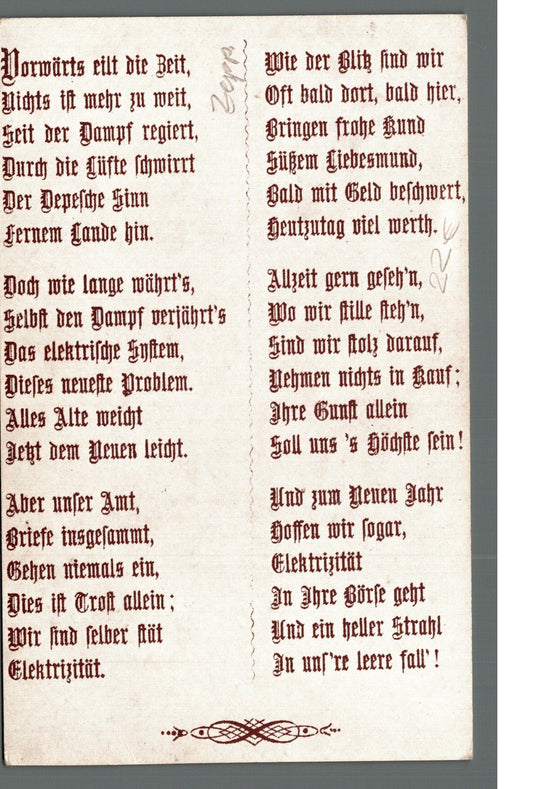 Vorwärts eilt die Zeit,
Nichts ist mehr zu weit,
Seit der Dampf regiert,
Durch die Lüfte schwirrt
Der Depesche Sinn
Fernem Lande hin.
Doch wie lange währt's,
Selbst den Dampf verjährt's
Das elektrische System,
Dieses neueste Problem.
Alles Alte weicht
Jetzt dem Neuen leicht.
Aber unser Amt,
Briefe insgesammt,
Gehen niemals ein,
Dies ist Trost allein;
Wir sind selber stät
Elektrizität.
Wie der Blitz sind wir
Oft bald dort, bald hier,
Bringen frohe Kund
Süßem Liebesmund,
Bald mit Geld beschwert,
Heutzutag viel werth.
Allzeit gern geseh'n,
Wo wir stille steh'n,
Sind wir stolz darauf,
Nehmen nichts in Kauf;
Ihre Gunst allein
Soll uns 's Höchste sein!
Und zum Neuen Jahr
Hoffen wir sogar,
Elektrizität
In Ihre Börse geht
Und ein heller Strahl
In uns're leere fall'!
Zepp.
22€